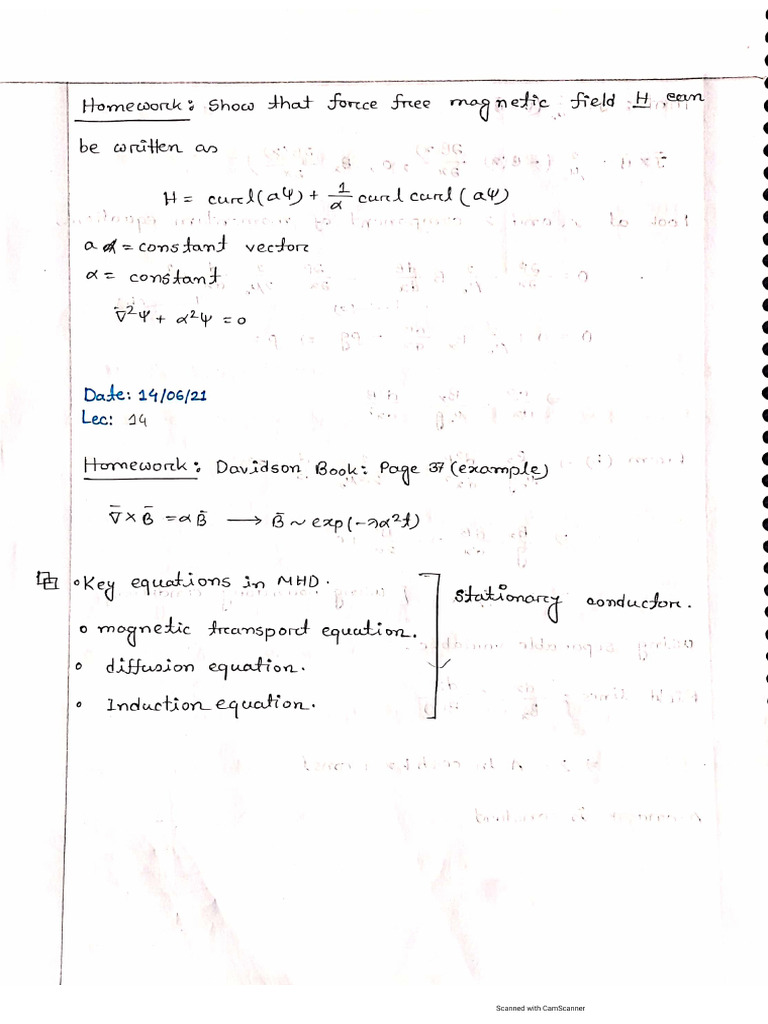 Homework: Show that force free magnetic field H can
be written as
H = curl(aψ) + 1/α curl curl (aψ)
a = constant vector
α = constant
∇²ψ + α²ψ = 0
Date: 14/06/21
Lec: 14
Homework: Davidson Book: Page 37 (example)
∇̄ × B̄ = α B̄ → B̄ ~ exp(-λα²t)
Key equations in MHD.
magnetic transport equation.
diffusion equation.
Induction equation.
stationary conductor.
Scanned with CamScanner